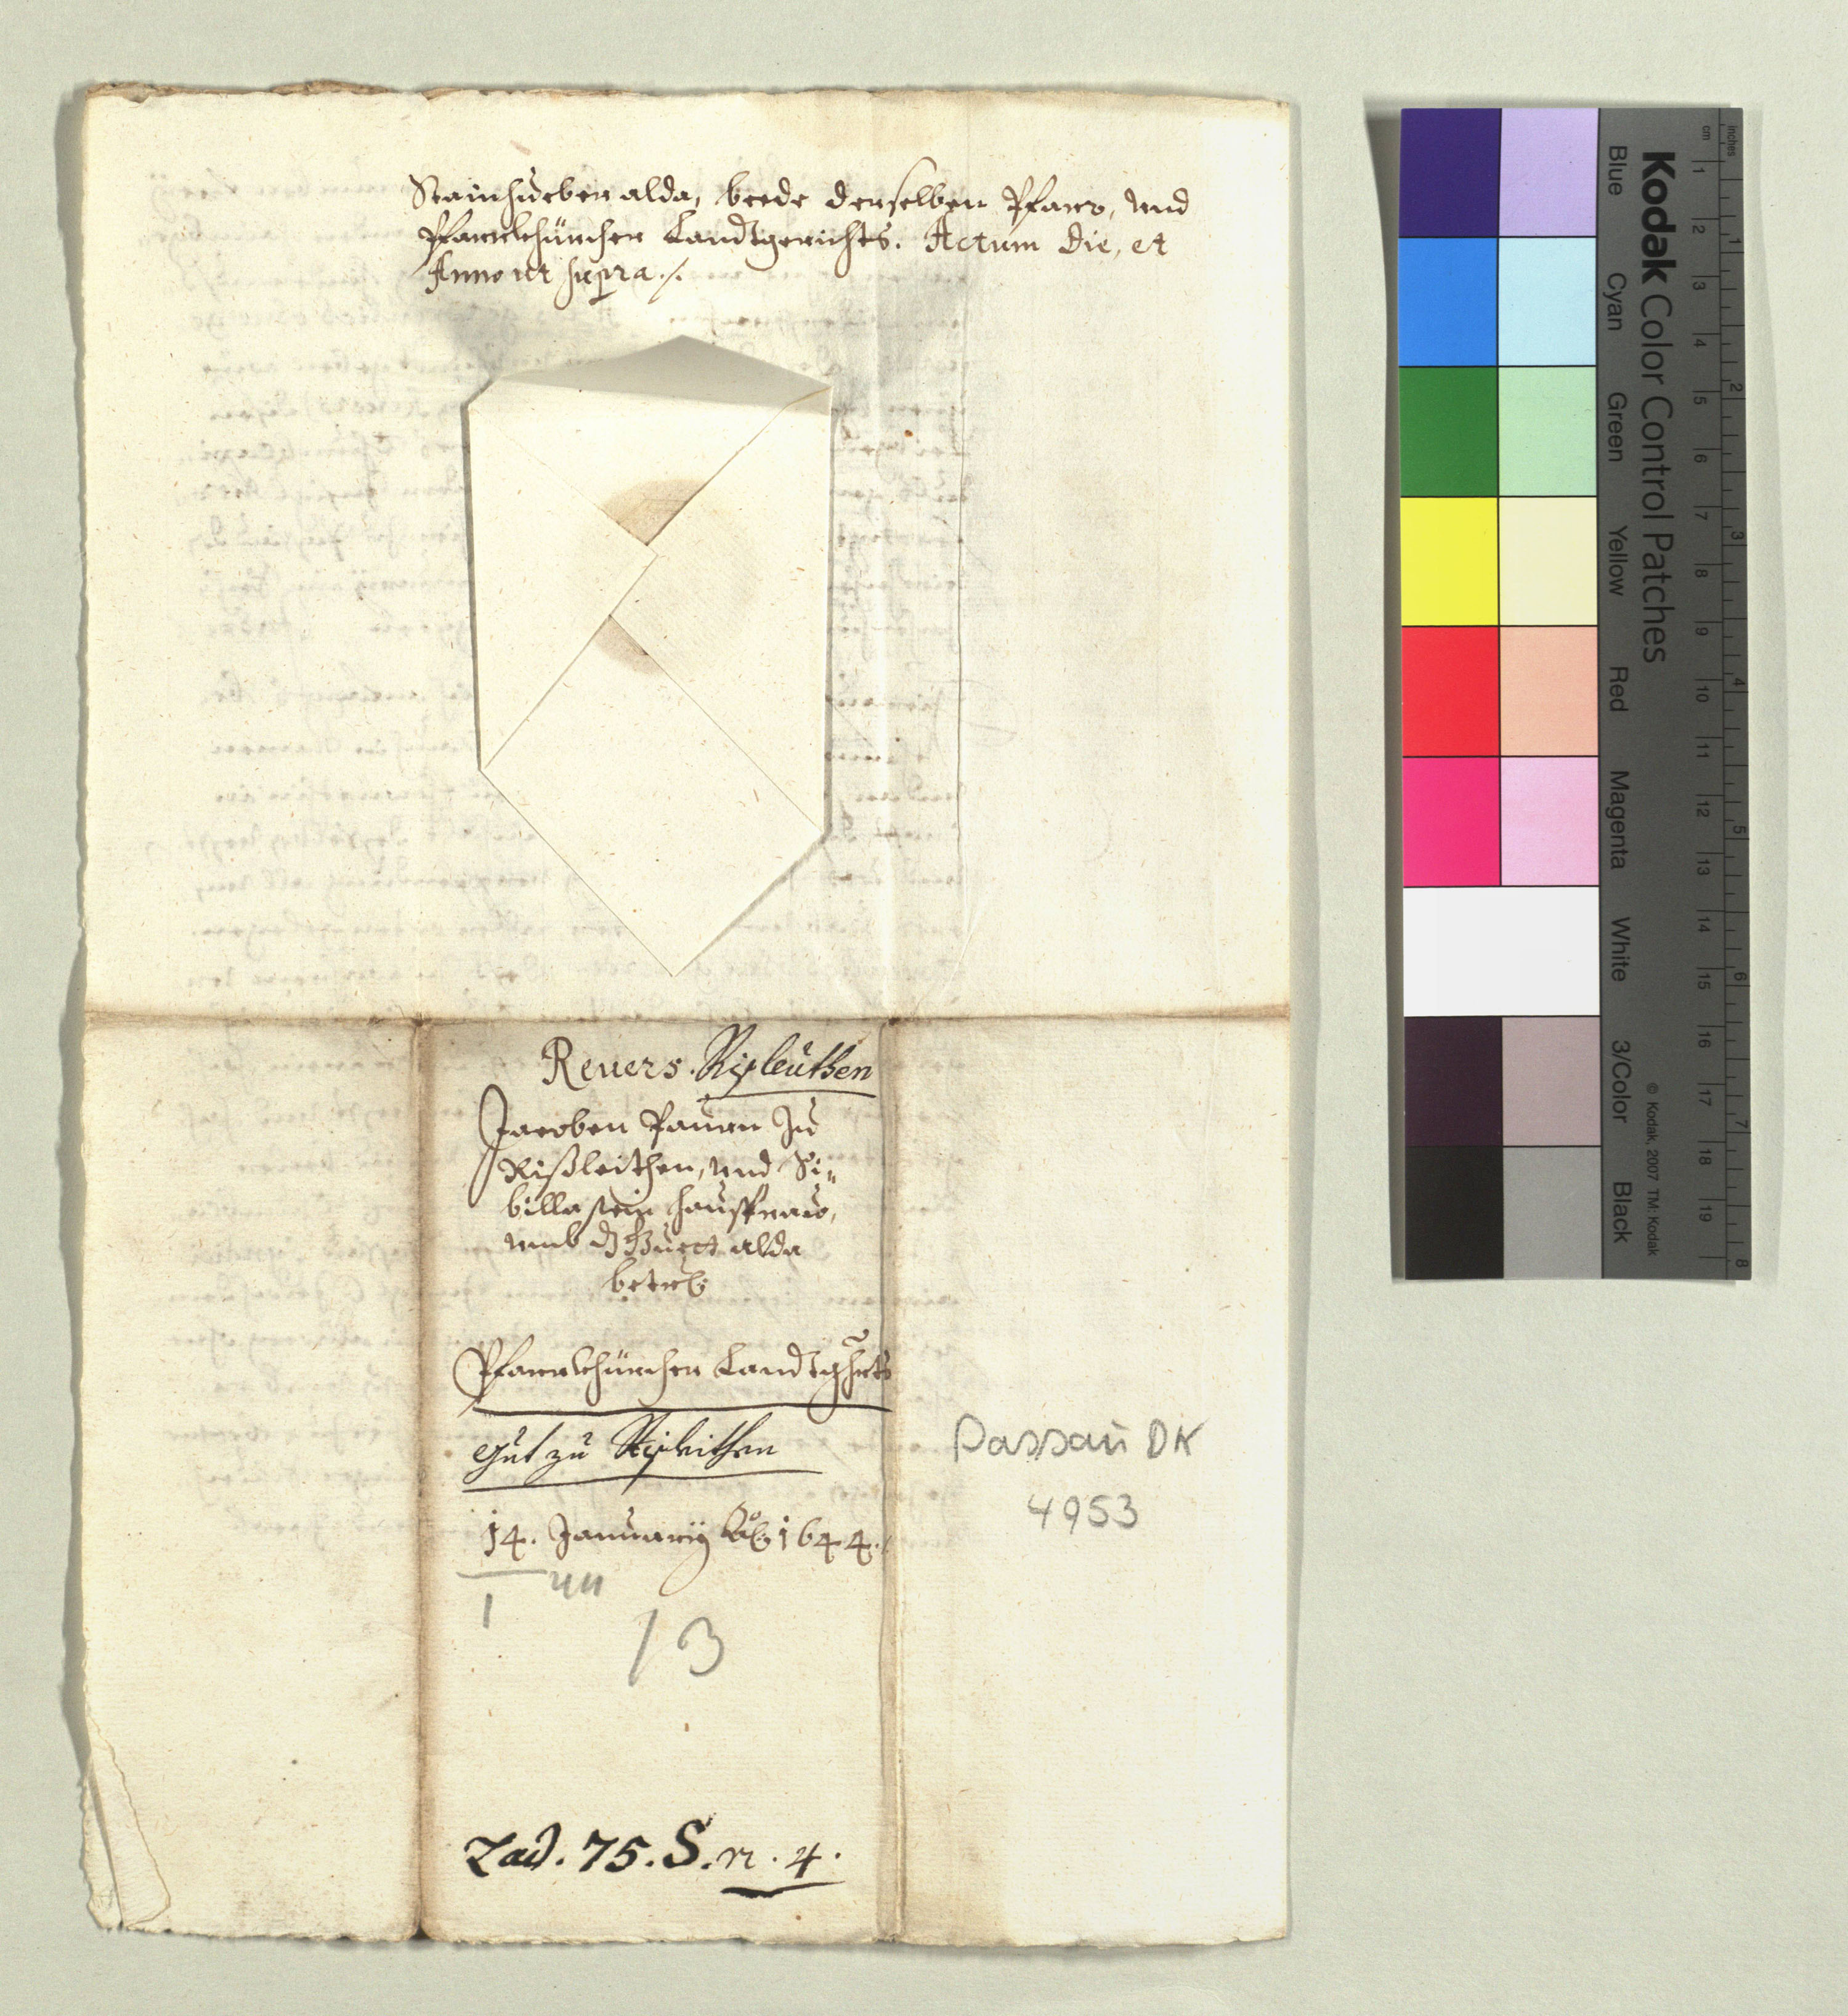 Stainhueber alda, beede derselben Pfarr, und
Pfarrkhürcher Landtgerichts. Actum die, et
Anno ut supra ./.
Revers. Rißleuthen
Jacoben Paurn zu
Rißleithen, und Si„
billa sein haußfrau,
umb dz Guett alda
betrf
Pfarrkhürcher Landtghrts
Gut zu Rißleithen
14. January Ao 1644.
1
44
13
Lad. 75. S. n. 4.
Passau DK
4953
Kodak Color Control Patches
Blue
Cyan
Green
Yellow
Red
Magenta
White
3/Color
Black
© Kodak, 2007 TM: Kodak
cm 1 2 3 4 5 6 7 8 9 10 11 12 13 14 15 16 17 18 19
inches 1 2 3 4 5 6 7 8